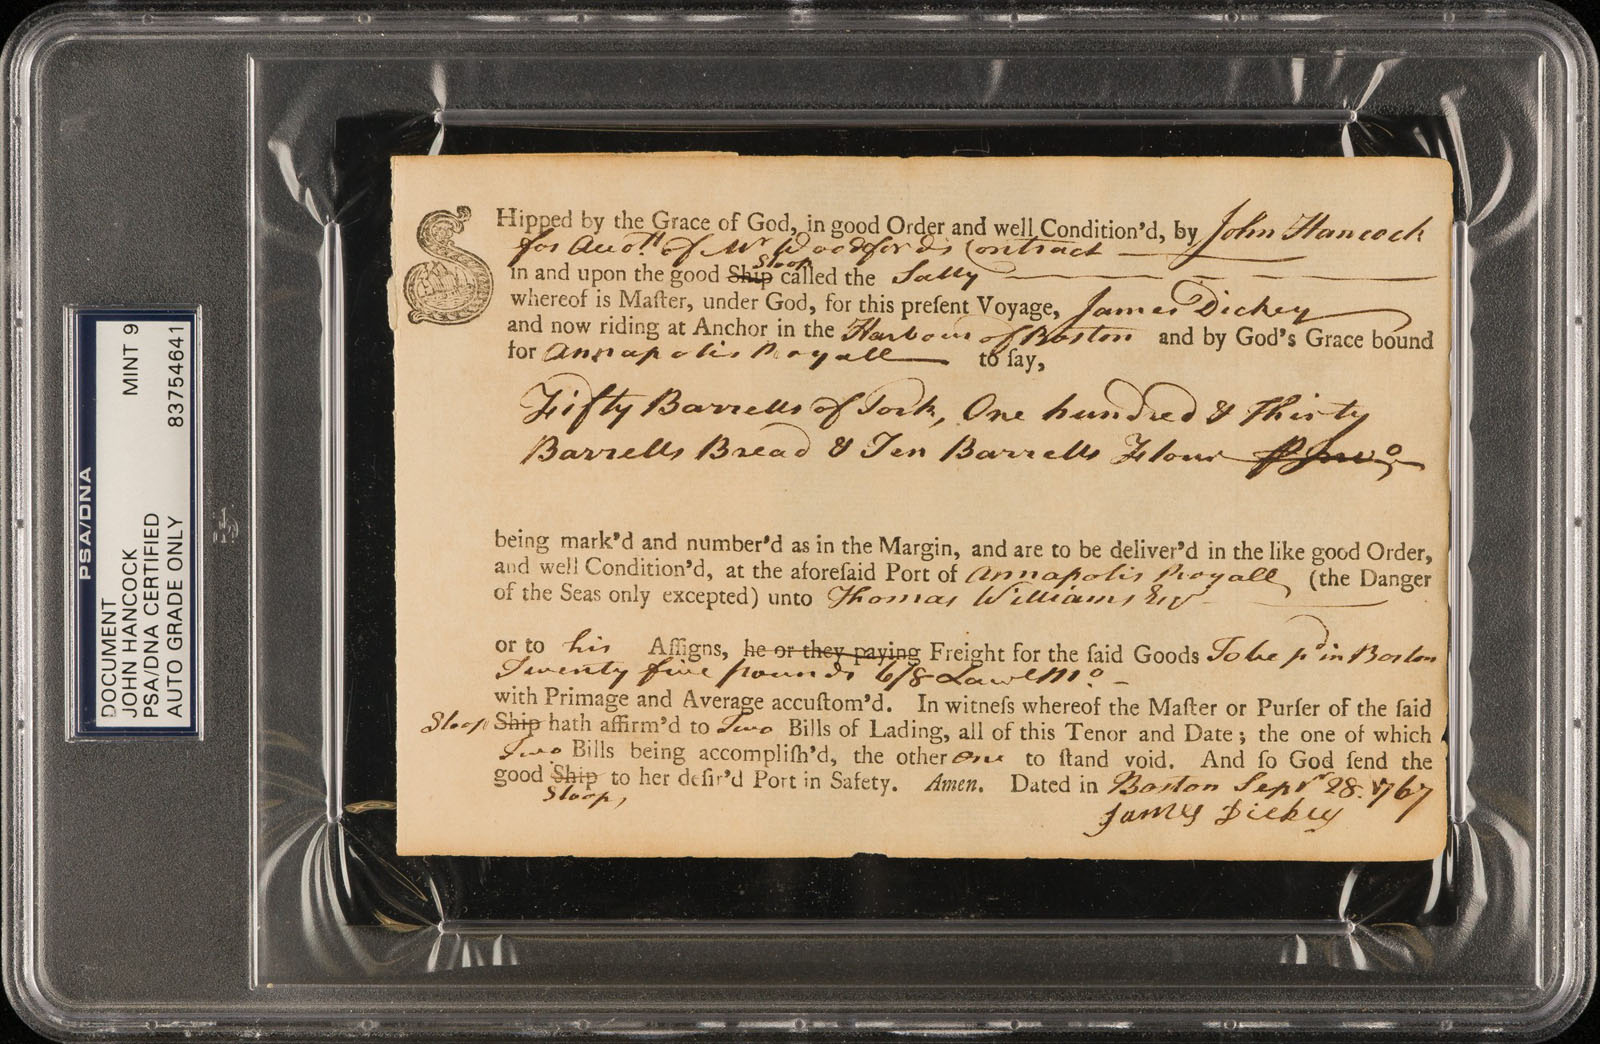 PSA/DNA
DOCUMENT
MINT 9
JOHN HANCOCK
PSA/DNA CERTIFIED
AUTO GRADE ONLY
83754641
SHipped by the Grace of God, in good Order and well Condition'd, by John Hancock
for Acco.tt of Mr Woodfords Contract
Sloop
in and upon the good Ship called the Sally
whereof is Maſter, under God, for this preſent Voyage, James Dickey
and now riding at Anchor in the Harbour of Boston and by God's Grace bound
for Annapolis Royall to ſay,
Fifty Barrells of Pork, One hundred & Thirty
Barrells Bread & Ten Barrells Flour
being mark'd and number'd as in the Margin, and are to be deliver'd in the like good Order,
and well Condition'd, at the aforeſaid Port of Annapolis Royall (the Danger
of the Seas only excepted) unto Thomas Williams Esqr
or to his Aſſigns, he or they paying Freight for the ſaid Goods To be pd in Boston
Twenty five pounds 6/8 Lawl Mo
with Primage and Average accuſtom'd. In witneſs whereof the Maſter or Purſer of the ſaid
Sloop Ship hath affirm'd to Two Bills of Lading, all of this Tenor and Date; the one of which
Two Bills being accompliſh'd, the other one to ſtand void. And ſo God ſend the
good Ship to her deſir'd Port in Safety. Amen. Dated in Boston Sepr 28. 1767
Sloop,
James Dickey